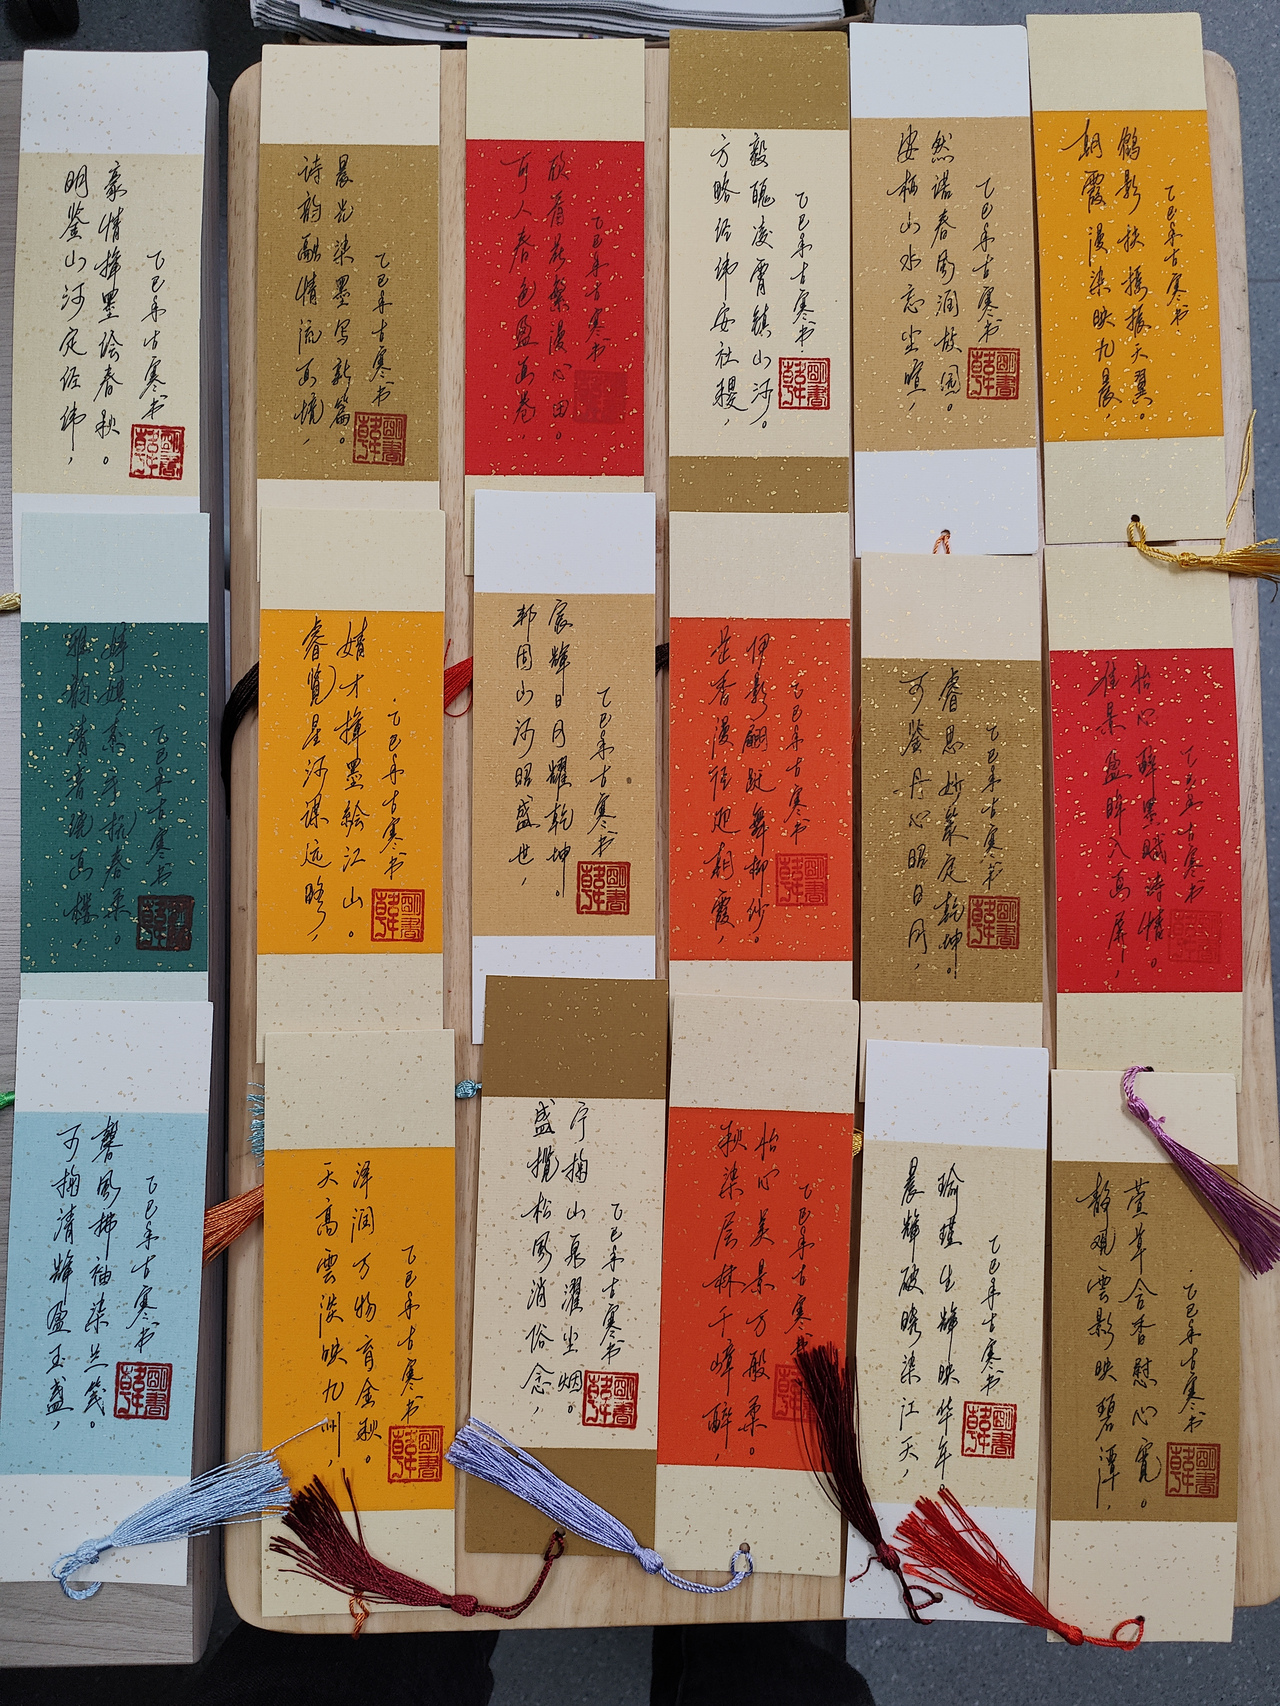 明鉴山河定经纬，
豪情挥墨绘春秋。
乙巳年古寒书
诗韵融情流画境，
晨光染墨写新篇。
乙巳年古寒书
可人春色盈画卷，
欣看繁漫心田。
乙巳年古寒书
方略经纬安社稷，
毅魄凌霄镇山河。
乙巳年古寒书
安栖山水忘尘喧，
然诺春风润故园。
乙巳年古寒书
朝霞漫染映九晨，
鹤影扶摇振天翼。
乙巳年古寒书
雅韵清音绕画楼，
婷娉素手抚春柔。
乙巳年古寒书
睿览星河谋远略，
婧才挥墨繪江山。
乙巳年古寒书
邦固山河昭盛世，
宸辉日月耀乾坤。
乙巳年古寒书
芷香漫径迎朝霞，
伊影翩跹舞柳纱。
乙巳年古寒书
可鉴丹心昭日月，
睿思妙策定乾坤。
乙巳年古寒书
佳景盈眸入画屏，
怡心醉墨赋诗情。
乙巳年古寒书
可掬清辉盈玉盏，
馨风拂袖染兰笺。
乙巳年古寒书
天高雲淡映九州，
泽润万物育金秋。
乙巳年古寒书
盛揽松风消俗念，
宁掬山泉濯尘烟。
乙巳年古寒书
秋染层林千嶂醉，
怡心美景万般柔。
乙巳年古寒书
晨辉破晓染江天，
瑜瑾生辉映华年。
乙巳年古寒书
静观雲影映碧潭，
萱草含香慰心宽。
乙巳年古寒书